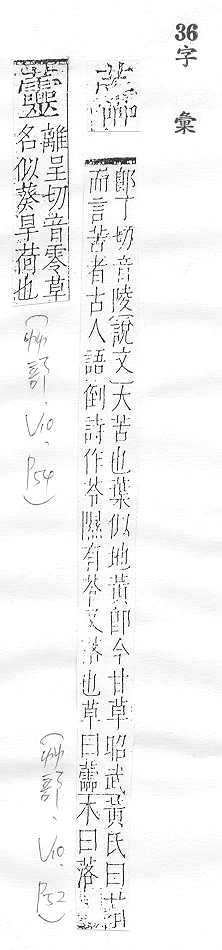 36字 彙
蘦
郎丁切音陵說文大苦也葉似地黃卽今甘草昭武黃氏曰甘
而言苦者古人語倒詩作苓隰有苓又落也草曰蘦木曰落
(艸部、V10、P52)
離呈切音零草
名似葵早荷也
(艸部、V10、P54)